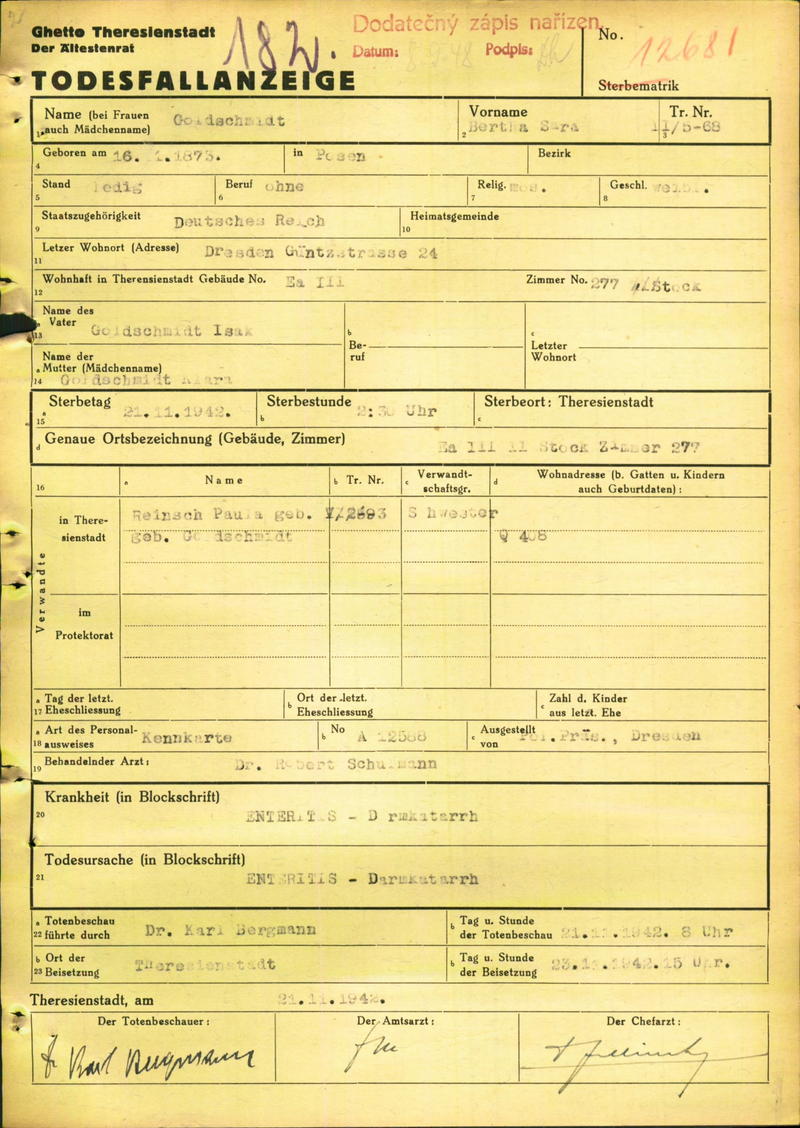 Ghetto Theresienstadt
Der Ältestenrat
TODESFALLANZEIGE
Dodatečný zápis nařízen
Datum: Podpis:
No.
12681
Sterbematrik
Name (bei Frauen auch Mädchenname) Goldschmidt
Vorname Bertha Sara
Tr. Nr.
1
2
3
Geboren am 16. 1875. in Posen Bezirk
4
Stand ledig Beruf ohne Relig. mos. Geschl. weibl.
5 6 7 8
Staatszugehörigkeit Deutsches Reich Heimatsgemeinde
9 10
Letzer Wohnort (Adresse) Dresden Güntzstrasse 24
11
Wohnhaft in Therensienstadt Gebäude No. Ea III Zimmer No. 277 Stock
12
Name des Vater Goldschmidt Isak
a 13
b Beruf
c Letzter Wohnort
Name der Mutter (Mädchenname)
a 14 Goldschmidt Klara
Sterbetag 21.11.1942. Sterbestunde 2:30 Uhr Sterbeort: Theresienstadt
a 15 b c
d Genaue Ortsbezeichnung (Gebäude, Zimmer) Ea III Stock Zimmer 277
16 a Name b Tr. Nr. c Verwandtschaftsgr. d Wohnadresse (b. Gatten u. Kindern auch Geburtdaten):
Verwandte
in Theresienstadt
Reinsch Paula geb. Schwester
geb. Goldschmidt Q 408
im Protektorat
a Tag der letzt. b Ort der letzt. c Zahl d. Kinder
17 Eheschliessung Eheschliessung aus letzt. Ehe
a Art des Personalausweises Kennkarte b No A 12588 c Ausgestellt von Pol.Präs., Dresden
18
Behandelnder Arzt: Dr. Robert Schuhmann
19
Krankheit (in Blockschrift)
20 ENTERITIS - Darmkatarrh
Todesursache (in Blockschrift)
21 ENTERITIS - Darmkatarrh
a Totenbeschau b Tag u. Stunde
22 führte durch Dr. Karl Bergmann der Totenbeschau 21.11.1942. 8 Uhr
b Ort der b Tag u. Stunde
23 Beisetzung Theresienstadt der Beisetzung 23.11.1942. 15 Uhr.
Theresienstadt, am 21.11.1942.
Der Totenbeschauer: Der Amtsarzt: Der Chefarzt:
Dr Karl Bergmann